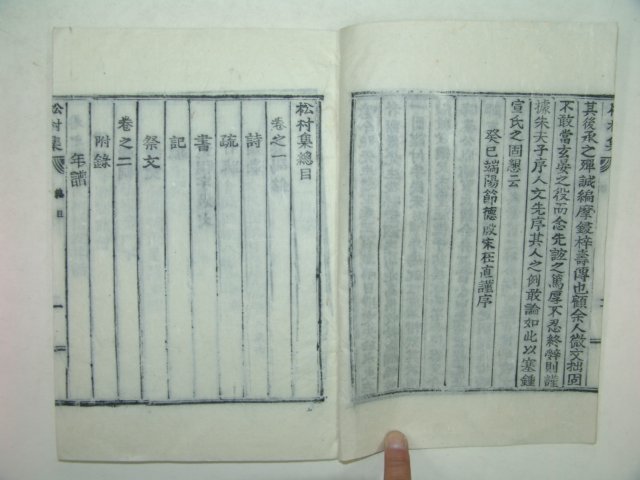 其後承之殫誠編摩鋟梓壽傳也顧余人微文拙固
不敢當玄晏之役而念先誼之篤厚不忍終辭則謹
據朱夫子序人文先序其人之例敢論如此以塞鍾
宣氏之固懇云
癸巳端陽節德殷宋在直謹序
松村集總目
卷之一
詩
疏
書
記
祭文
卷之二
附錄
年譜
松村集
總目
一